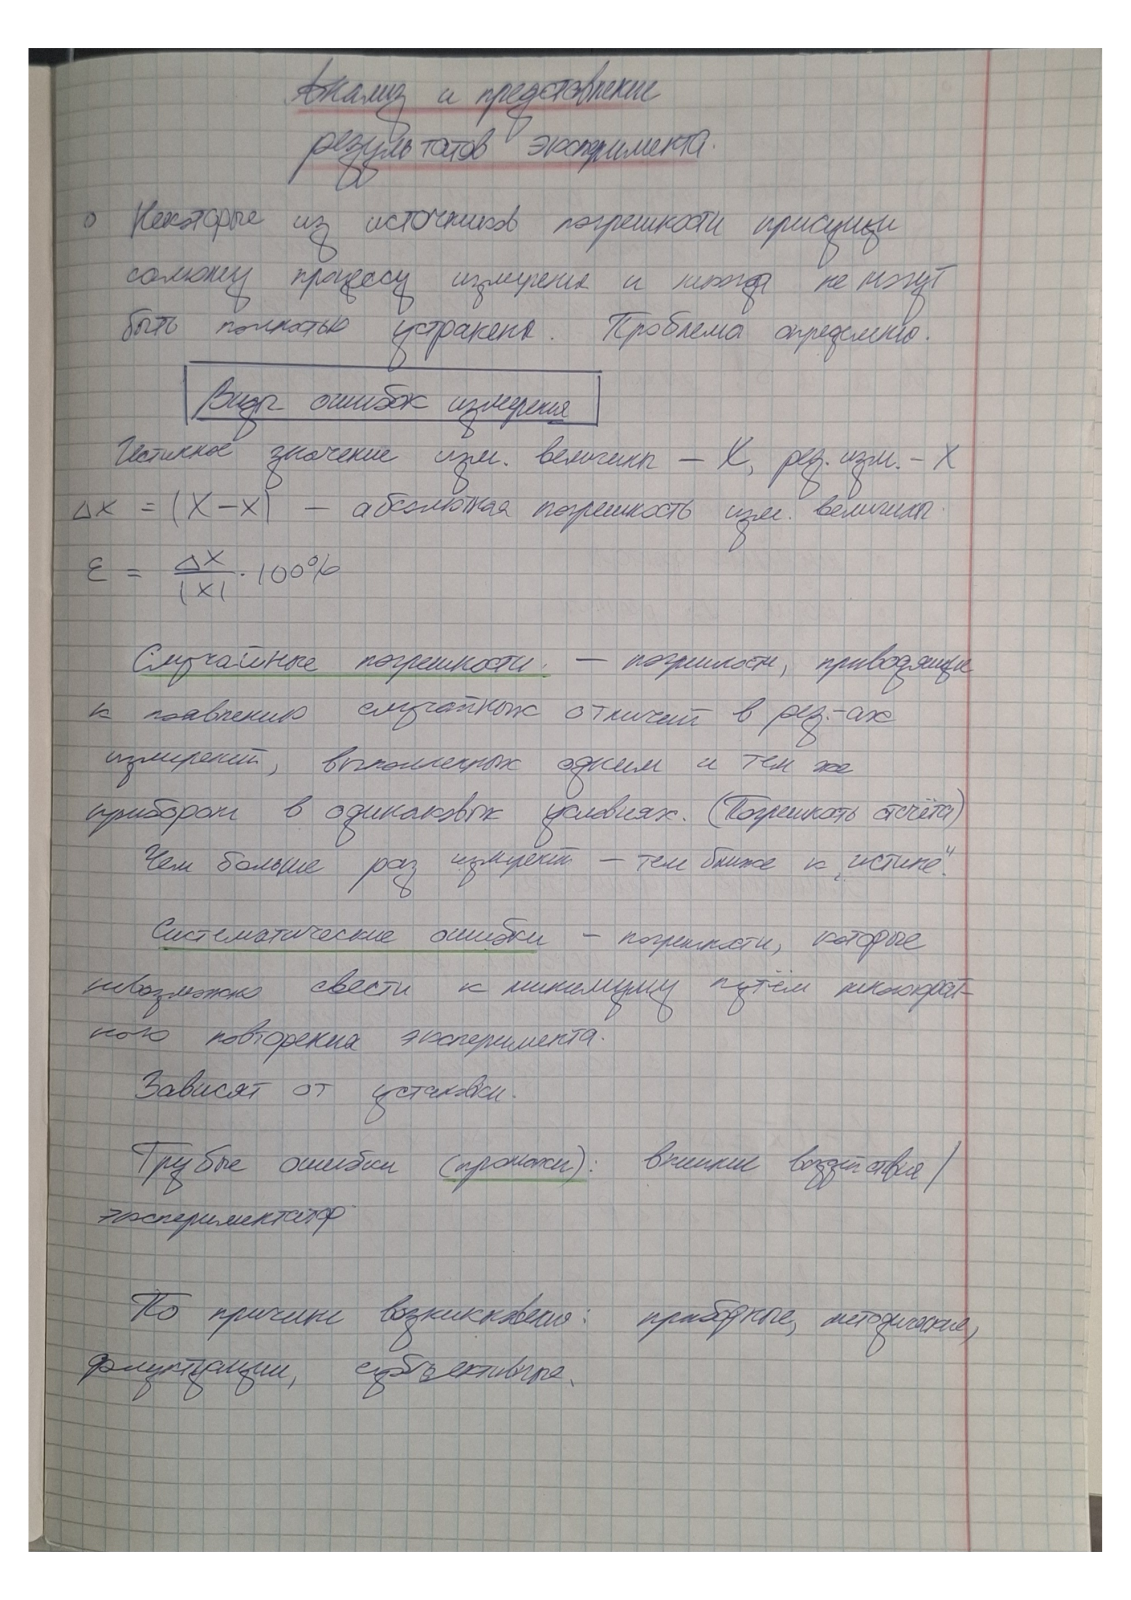 Анализ и представление
результатов эксперимента.
Некоторые из источников погрешности присущи
самому процессу измерения и никогда не могут
быть полностью устранены. Проблема определению.
Виды ошибок измерения
Истинное значение изм. величины – X, рез. изм. – x
Δx = |X – x| – абсолютная погрешность изм. величины.
ε = Δx / |x| · 100%
Случайные погрешности. – погрешности, приводящие
к появлению случайных отличий в рез-ах
измерений, выполненных одним и тем же
прибором в одинаковых условиях. (Погрешность отсчёта)
Чем больше раз измерений – тем ближе к "истине".
Систематические ошибки – погрешности, которые
невозможно свести к минимуму путём многократ-
ного повторения эксперимента.
Зависят от установки.
Грубые ошибки (промахи): внешние воздействия/
экспериментатор
По причине возникновения: приборные, методические,
флуктуации, субъективные.